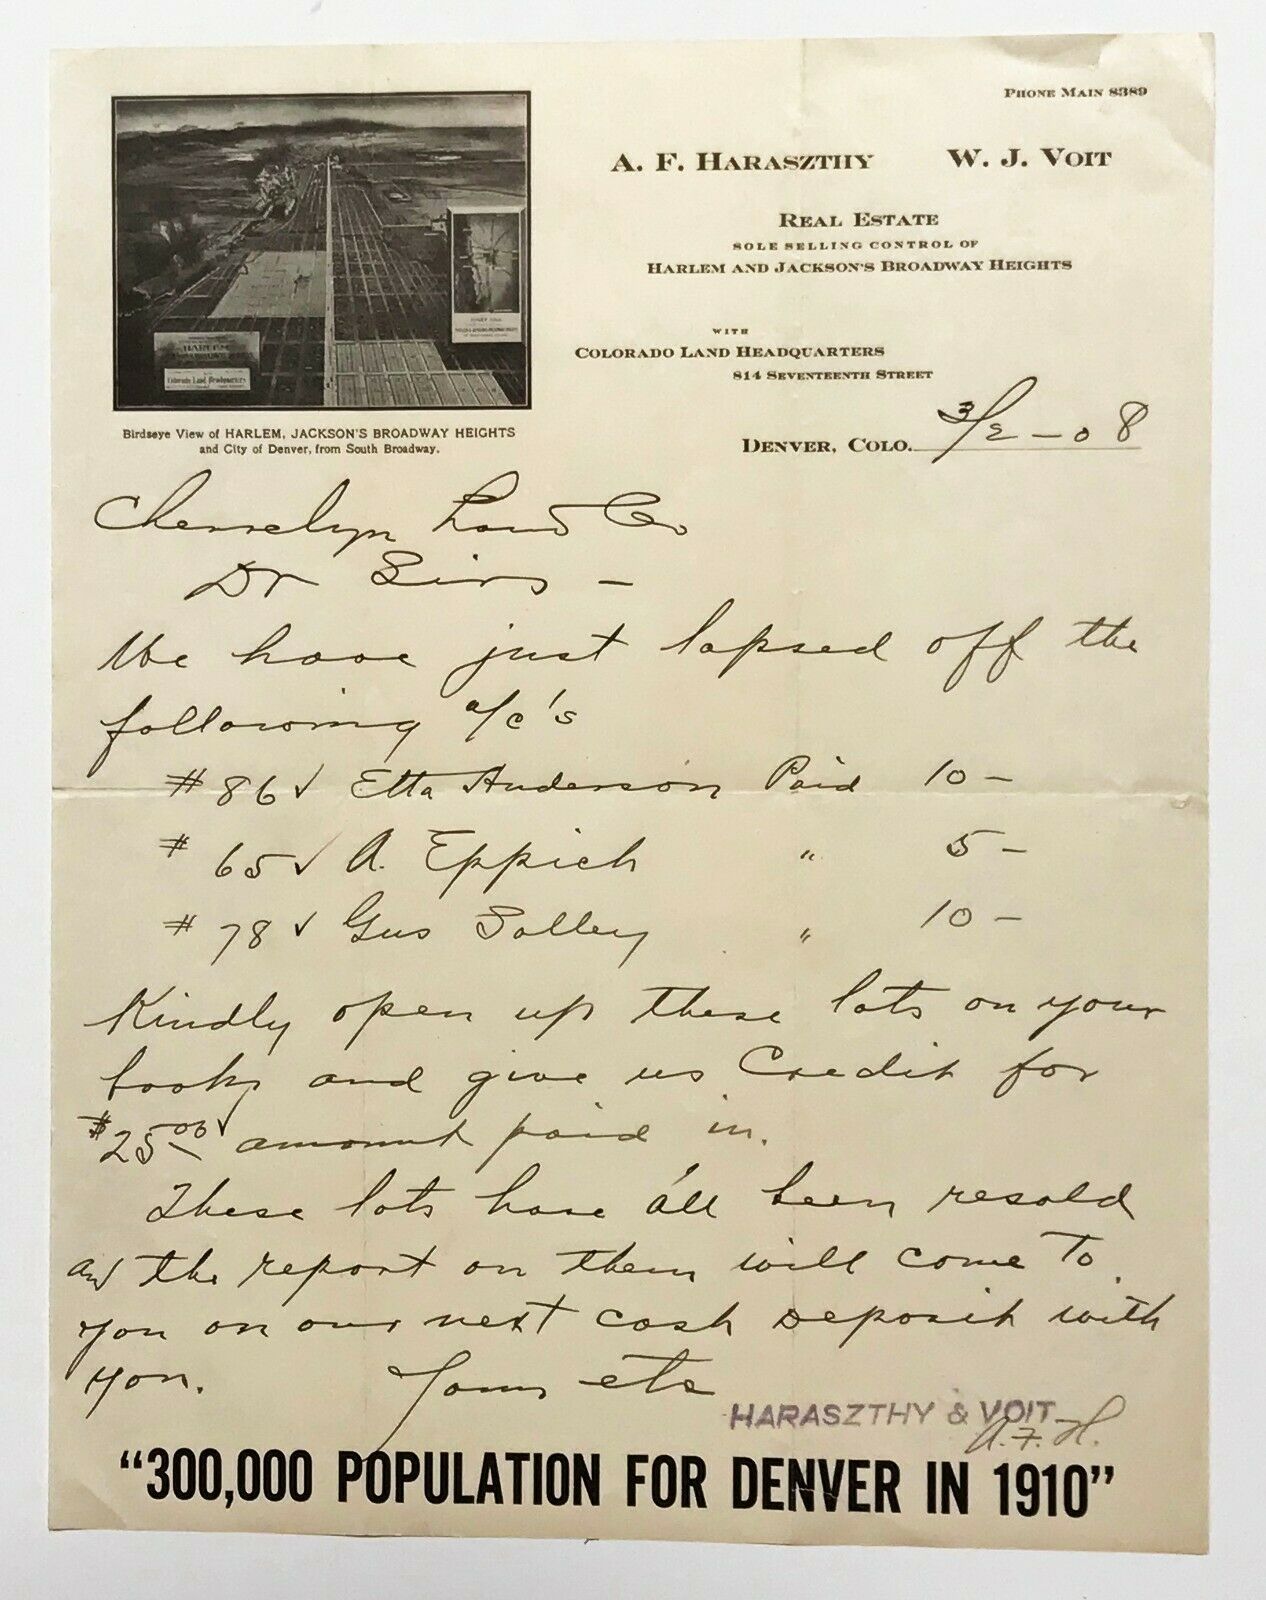 PHONE MAIN 8389
A. F. HARASZTHY W. J. VOIT
REAL ESTATE
SOLE SELLING CONTROL OF
HARLEM AND JACKSON'S BROADWAY HEIGHTS
WITH
COLORADO LAND HEADQUARTERS
814 SEVENTEENTH STREET
DENVER, COLO. 3/2-08
HARLEM
Colorado Land Headquarters
Birdseye View of HARLEM, JACKSON'S BROADWAY HEIGHTS
and City of Denver, from South Broadway.
Cherrelyn Land Co
Dr Sirs -
We have just lapsed off the
following a/c's
# 86 ✓ Etta Anderson Paid 10 -
# 65 ✓ A. Eppich " 5 -
# 78 ✓ Gus Solley " 10 -
Kindly open up these lots on your
books and give us Credit for
$25.00 ✓ amount paid in.
These lots have all been resold
and the report on them will come to
you on our next cash deposit with
you. Yours etc
HARASZTHY & VOIT
A. F. H.
"300,000 POPULATION FOR DENVER IN 1910"